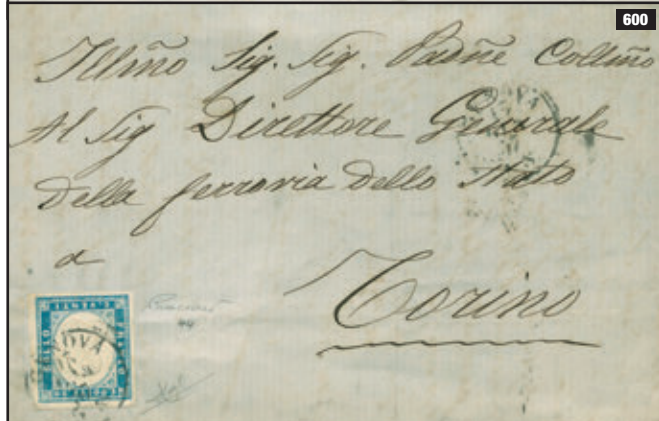 600
Illm̃o Sig. Sig. Padñe Collm̃o
Al Sig Direttore Generale
Della ferrovia dello Stato
a
Torino
GENOVA